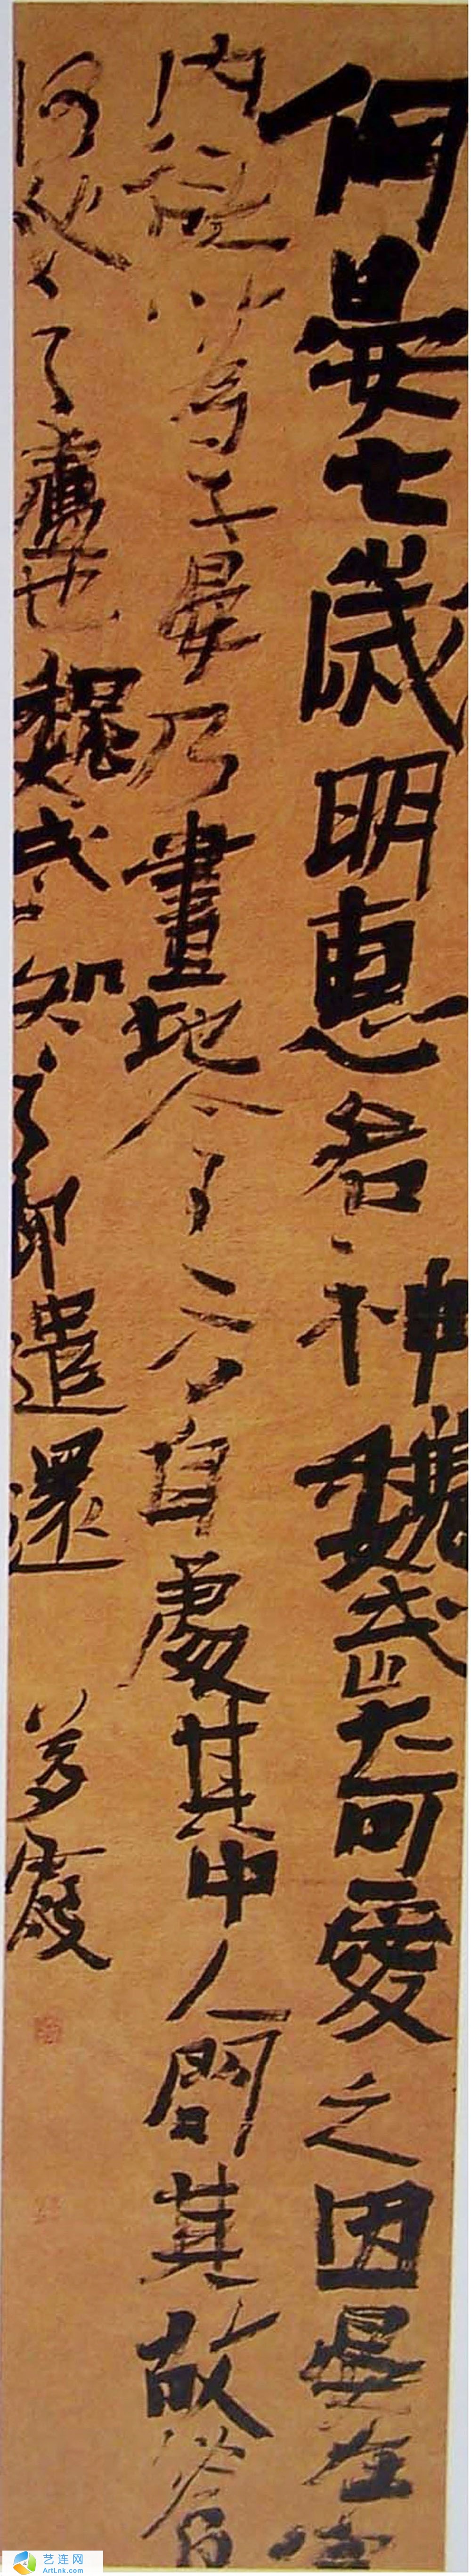 何晏七歲明惠若神魏武奇愛之因晏在宮
內欲以為子晏乃畫地令方自處其中人問其故答曰
何氏之廬也魏武知之即遣還
艺连网
ArtLnk.com